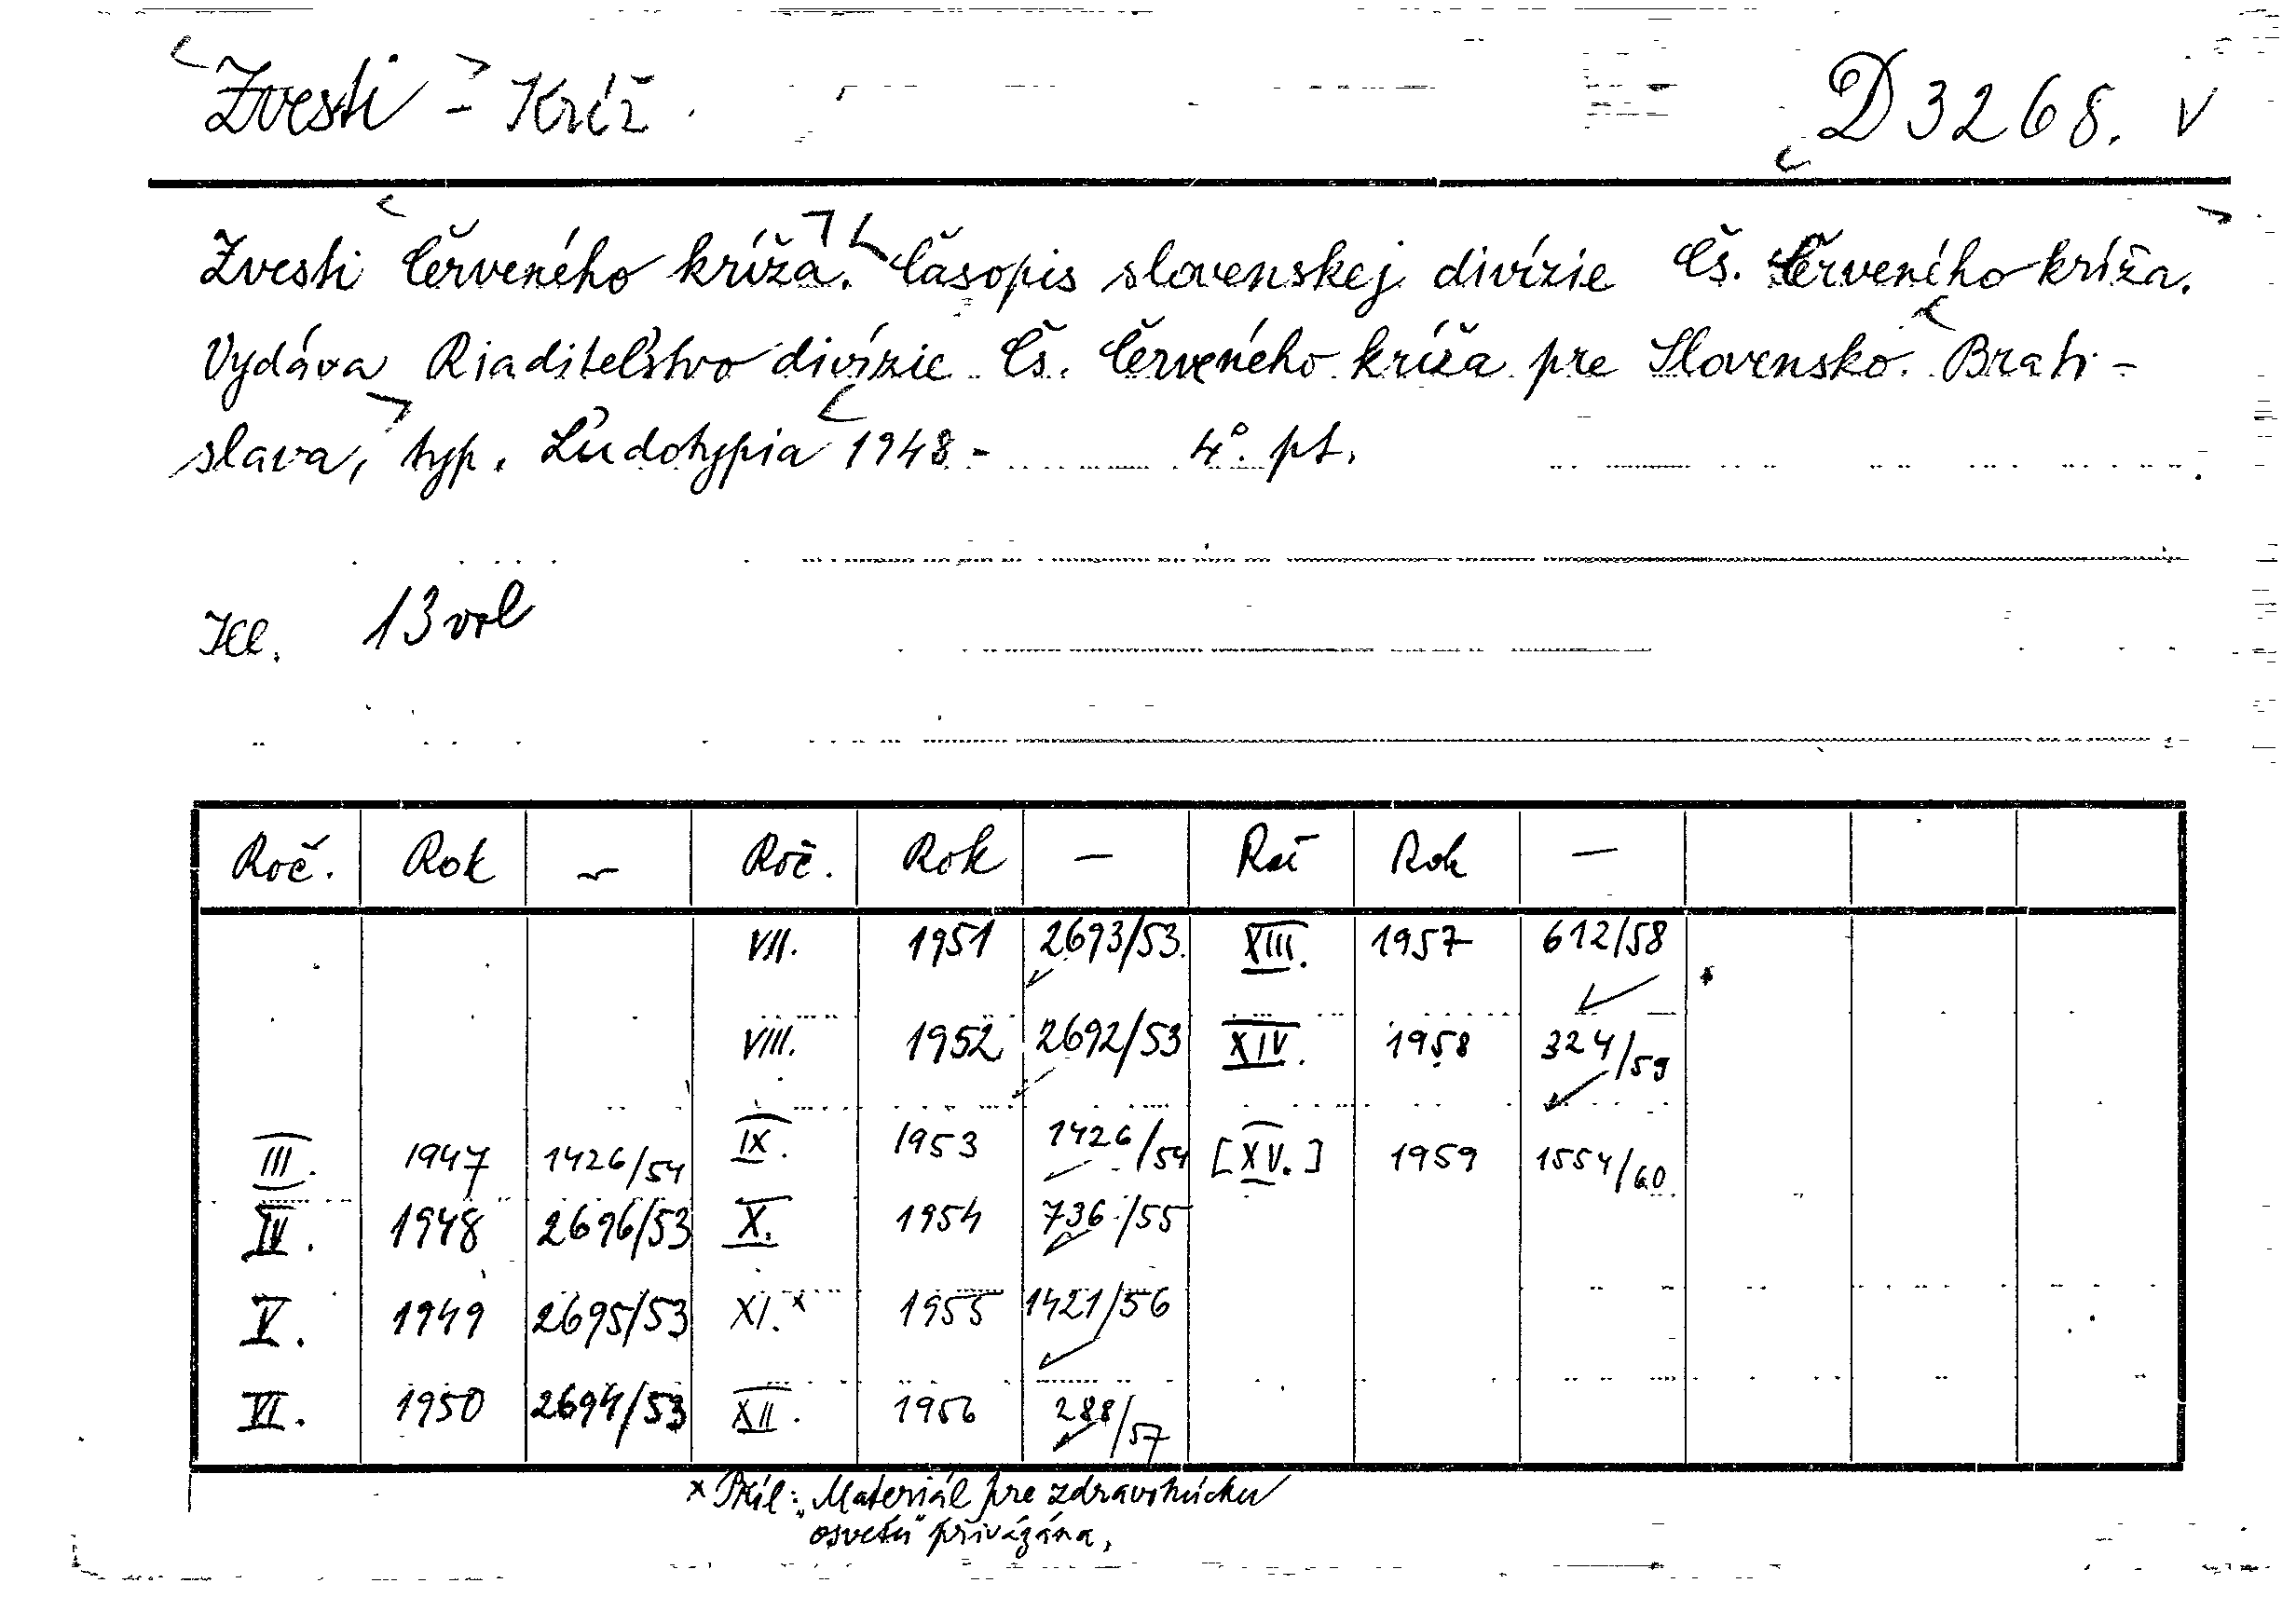 Zvesti - Kríž D 3268. V
Zvesti Červeného kríža. Časopis slovenskej divízie Čs. Červeného kríža.
Vydáva Riaditeľstvo divízie Čs. Červeného kríža pre Slovensko. Brati-
slava, typ. Ľudotypia 1948- 4°. pt.
Ill. 13 vol
Roč. Rok — Roč. Rok — Roč Rok —
VII. 1951 2693/53. XIII. 1957 612/58
VIII. 1952 2692/53 XIV. 1958 324/59
III. 1947 1426/54 IX. 1953 1426/54 [XV.] 1959 1554/60
IV. 1948 2696/53 X. 1954 736/55
V. 1949 2695/53 XI.x 1955 1421/56
VI. 1950 2694/53 XII. 1956 288/57
x Příl: „Materiál pre zdravotnícku
osvetu" přivázána.